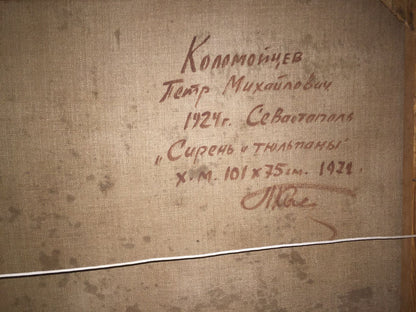 Коломойцев
Петр Михайлович
1924г. Севастополь
„Сирень и тюльпаны"
х.м. 101х75см. 1971.